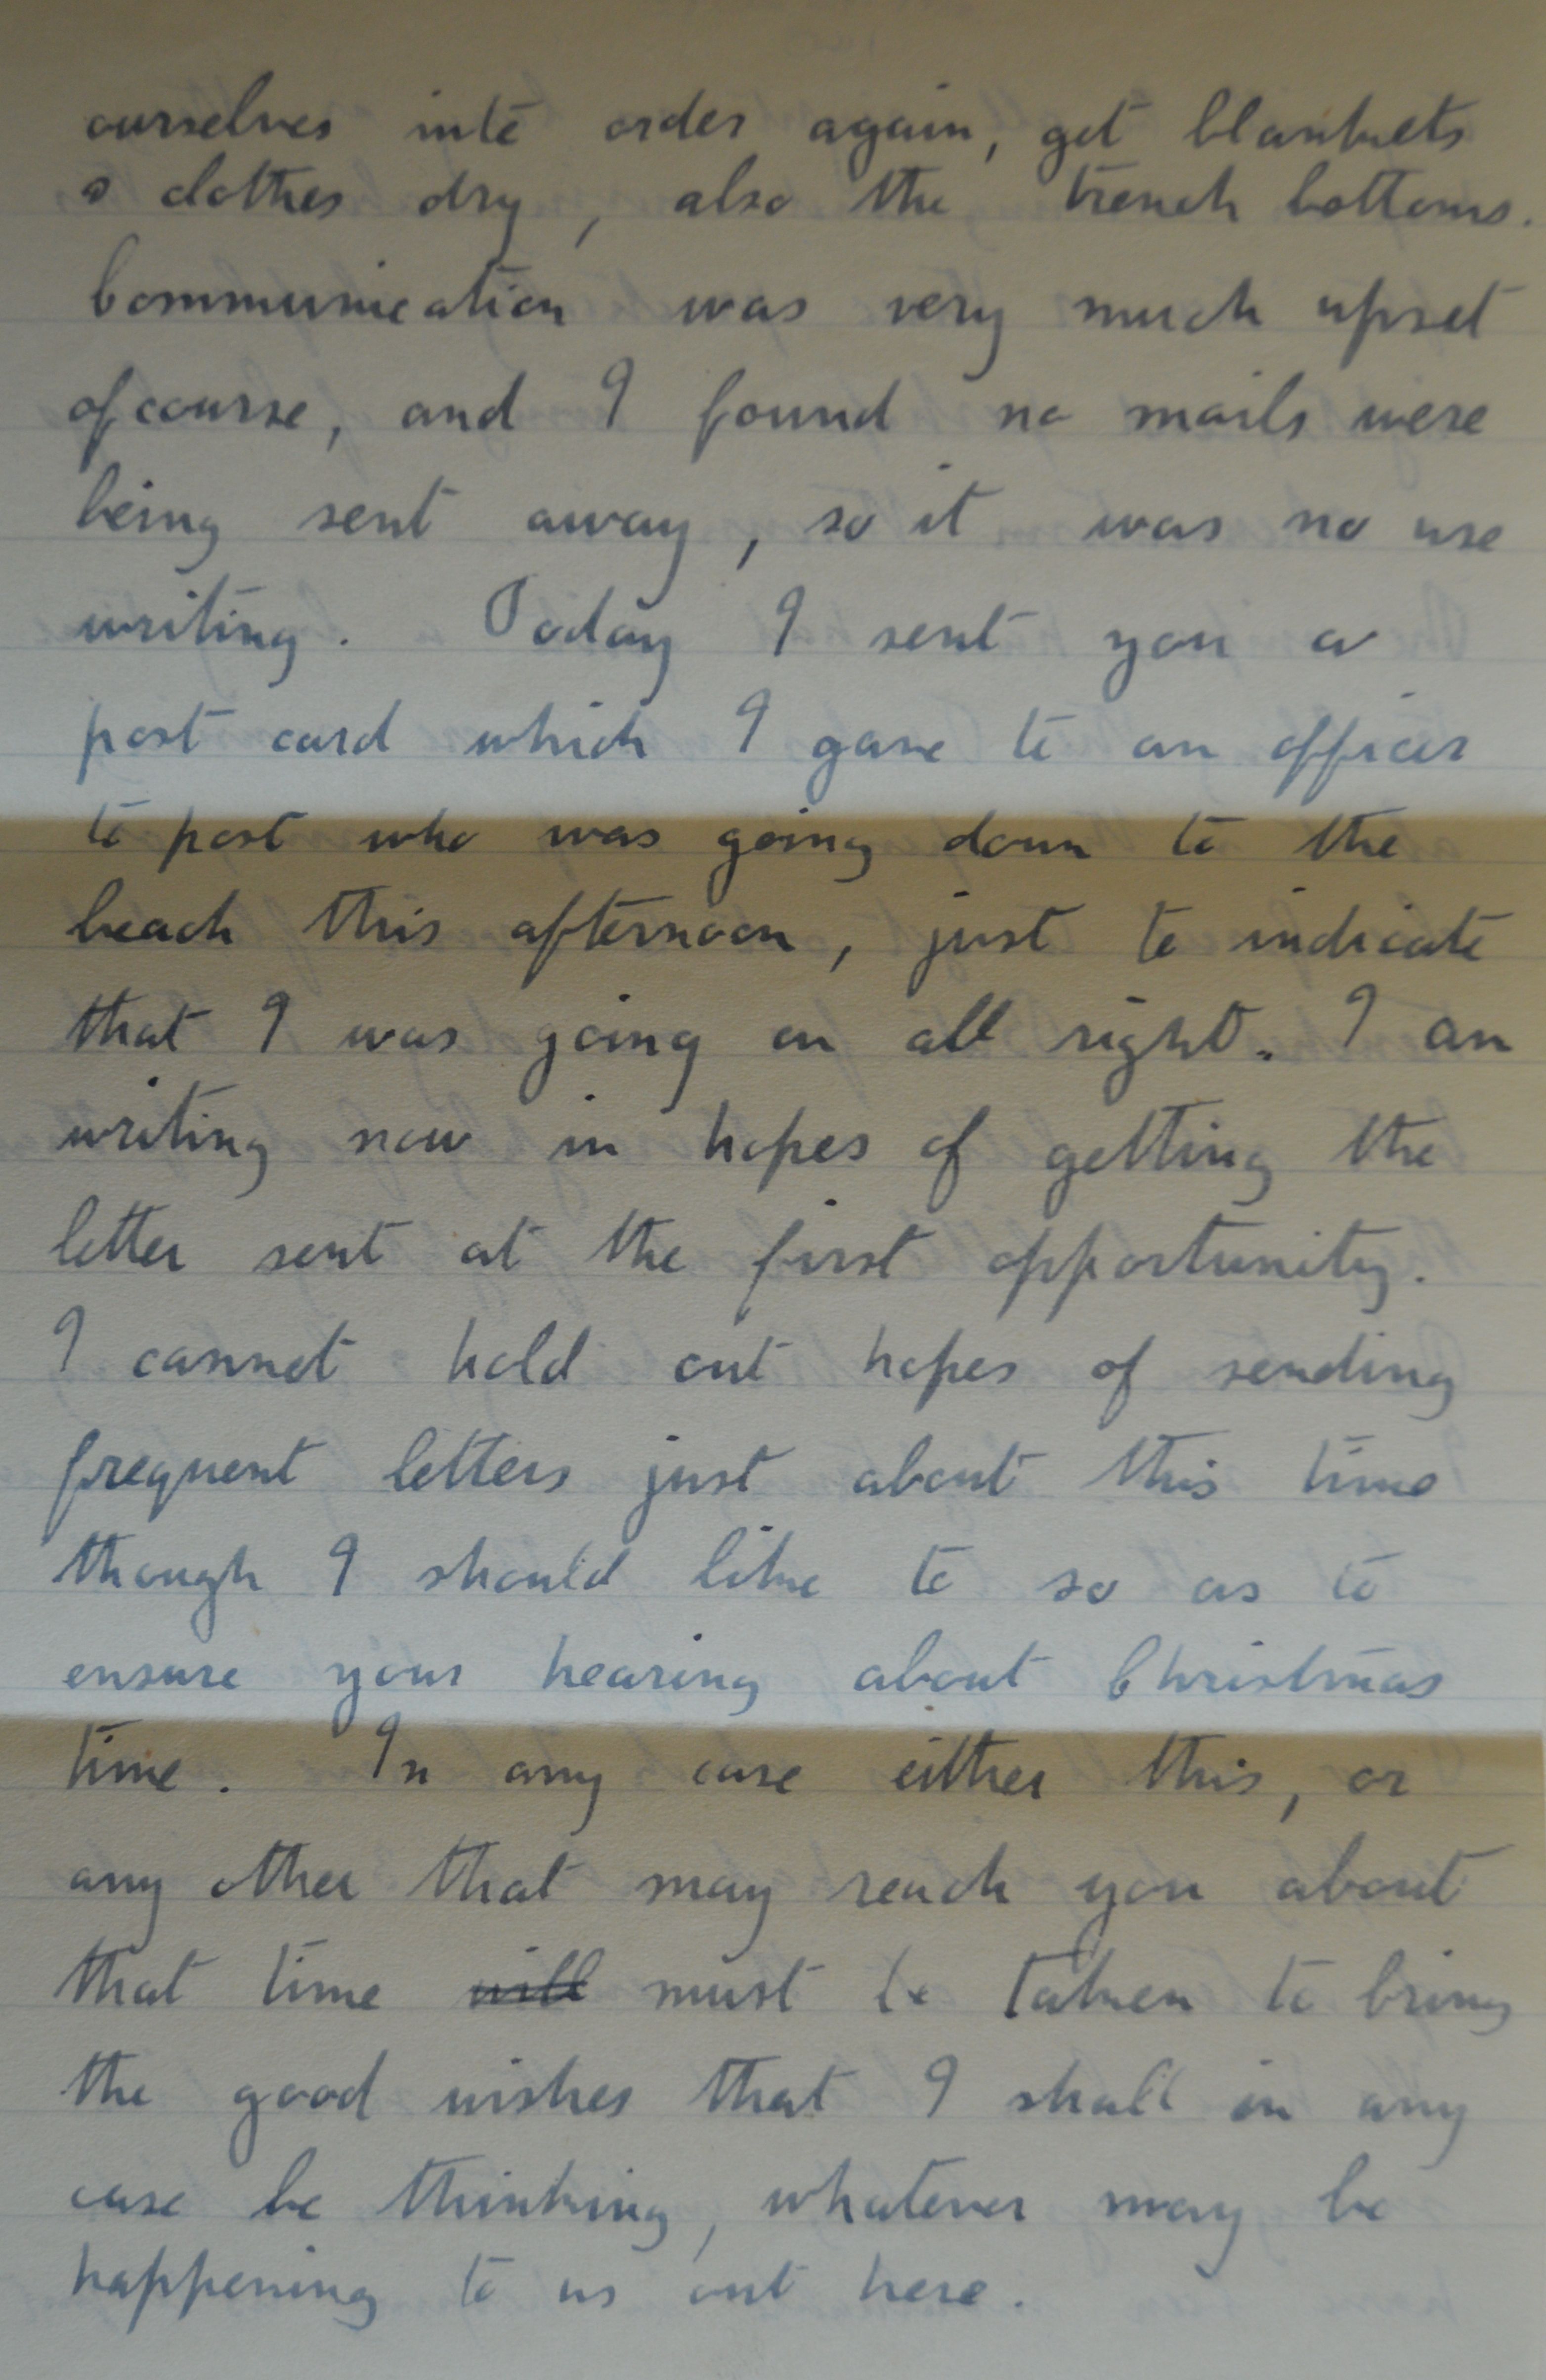 ourselves into order again, get blankets
& clothes dry, also the trench bottoms.
Communication was very much upset
ofcourse, and I found no mails were
being sent away, so it was no use
writing. Today I sent you a
post card which I gave to an officer
to post who was going down to the
beach this afternoon, just to indicate
that I was going on all right. I am
writing now in hopes of getting the
letter sent at the first opportunity.
I cannot hold out hopes of sending
frequent letters just about this time
though I should like to so as to
ensure your hearing about Christmas
time. In any case either this, or
any other that may reach you about
that time will must be taken to bring
the good wishes that I shall in any
case be thinking, whatever may be
happening to us out here.